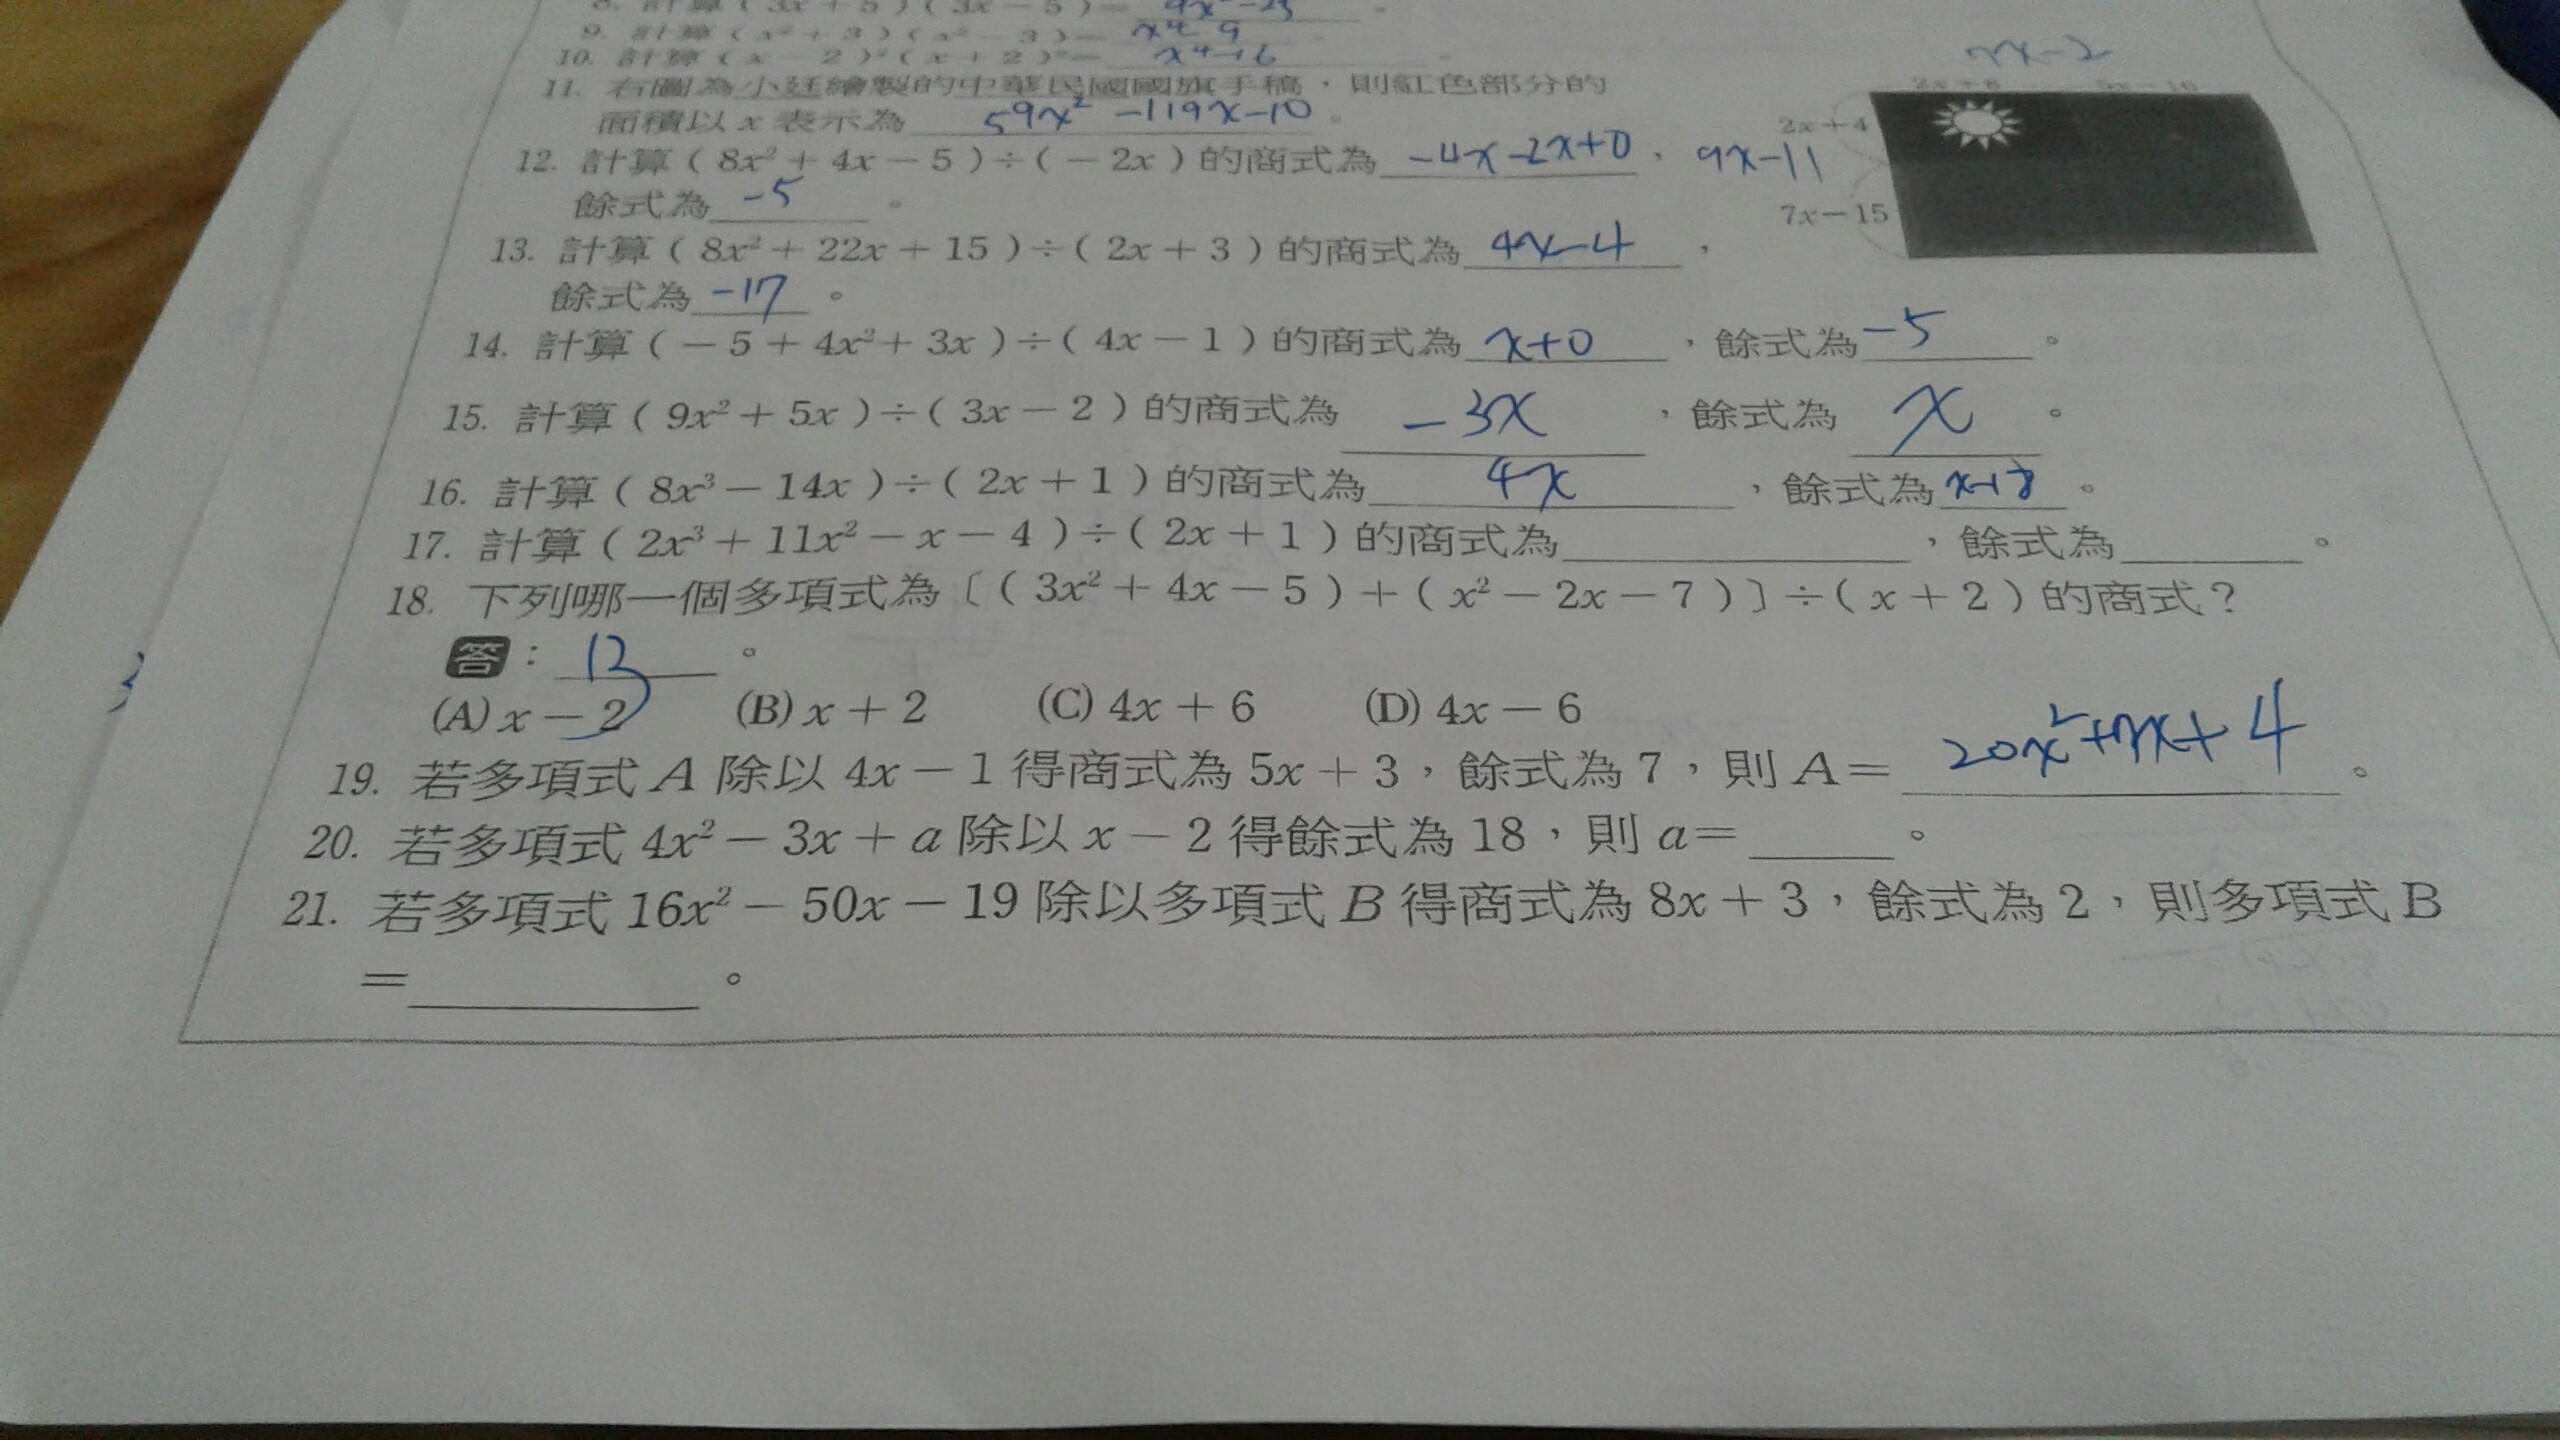 8. 計算（3x＋5）（3x－5）＝ 9x²-25 。
9. 計算（x²＋3）（x²－3）＝ x⁴-9
10. 計算（x－2）²（x＋2）²＝ 。
11. 右圖為小廷繪製的中華民國國旗手稿，則紅色部分的
面積以 x 表示為 59x² -119x-10 。
12. 計算（8x²＋4x－5）÷（－2x）的商式為 -4x-2x+0 ，
餘式為 -5 。
13. 計算（8x²＋22x＋15）÷（2x＋3）的商式為 4x-4 ，
餘式為 -17 。
2x＋4
9x-11
7x－15
14. 計算（－5＋4x²＋3x）÷（4x－1）的商式為 x+0 ，餘式為 -5 。
15. 計算（9x²＋5x）÷（3x－2）的商式為 -3x ，餘式為 x 。
16. 計算（8x³－14x）÷（2x＋1）的商式為 4x ，餘式為 。
17. 計算（2x³＋11x²－x－4）÷（2x＋1）的商式為 ，餘式為 。
18. 下列哪一個多項式為〔（3x²＋4x－5）＋（x²－2x－7）〕÷（x＋2）的商式？
答： 。
(A) x－2 (B) x＋2 (C) 4x＋6 (D) 4x－6
19. 若多項式 A 除以 4x－1 得商式為 5x＋3，餘式為 7，則 A＝ 20x²+7x+4 。
20. 若多項式 4x²－3x＋a 除以 x－2 得餘式為 18，則 a＝ 。
21. 若多項式 16x²－50x－19 除以多項式 B 得商式為 8x＋3，餘式為 2，則多項式 B
＝ 。